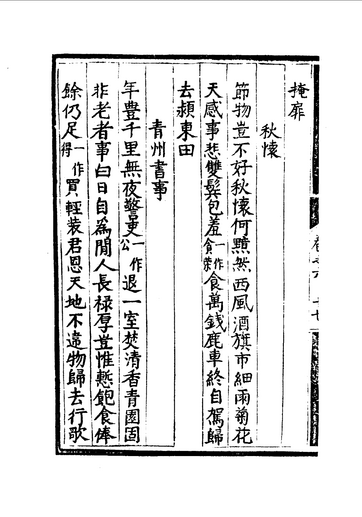 掩扉
秋懷
節物豈不好秋懷何黯然西風酒旗市細雨菊花
天感事悲雙鬢包羞一作貪榮食萬錢鹿車終自駕歸
去潁東田
青州書事
年豐千里無夜警吏一作公退一室焚清香青園固
非老者事白日自爲閒人長祿厚豈惟慙飽食俸
餘仍足一作得買輕装君恩天地不違物歸去行歌